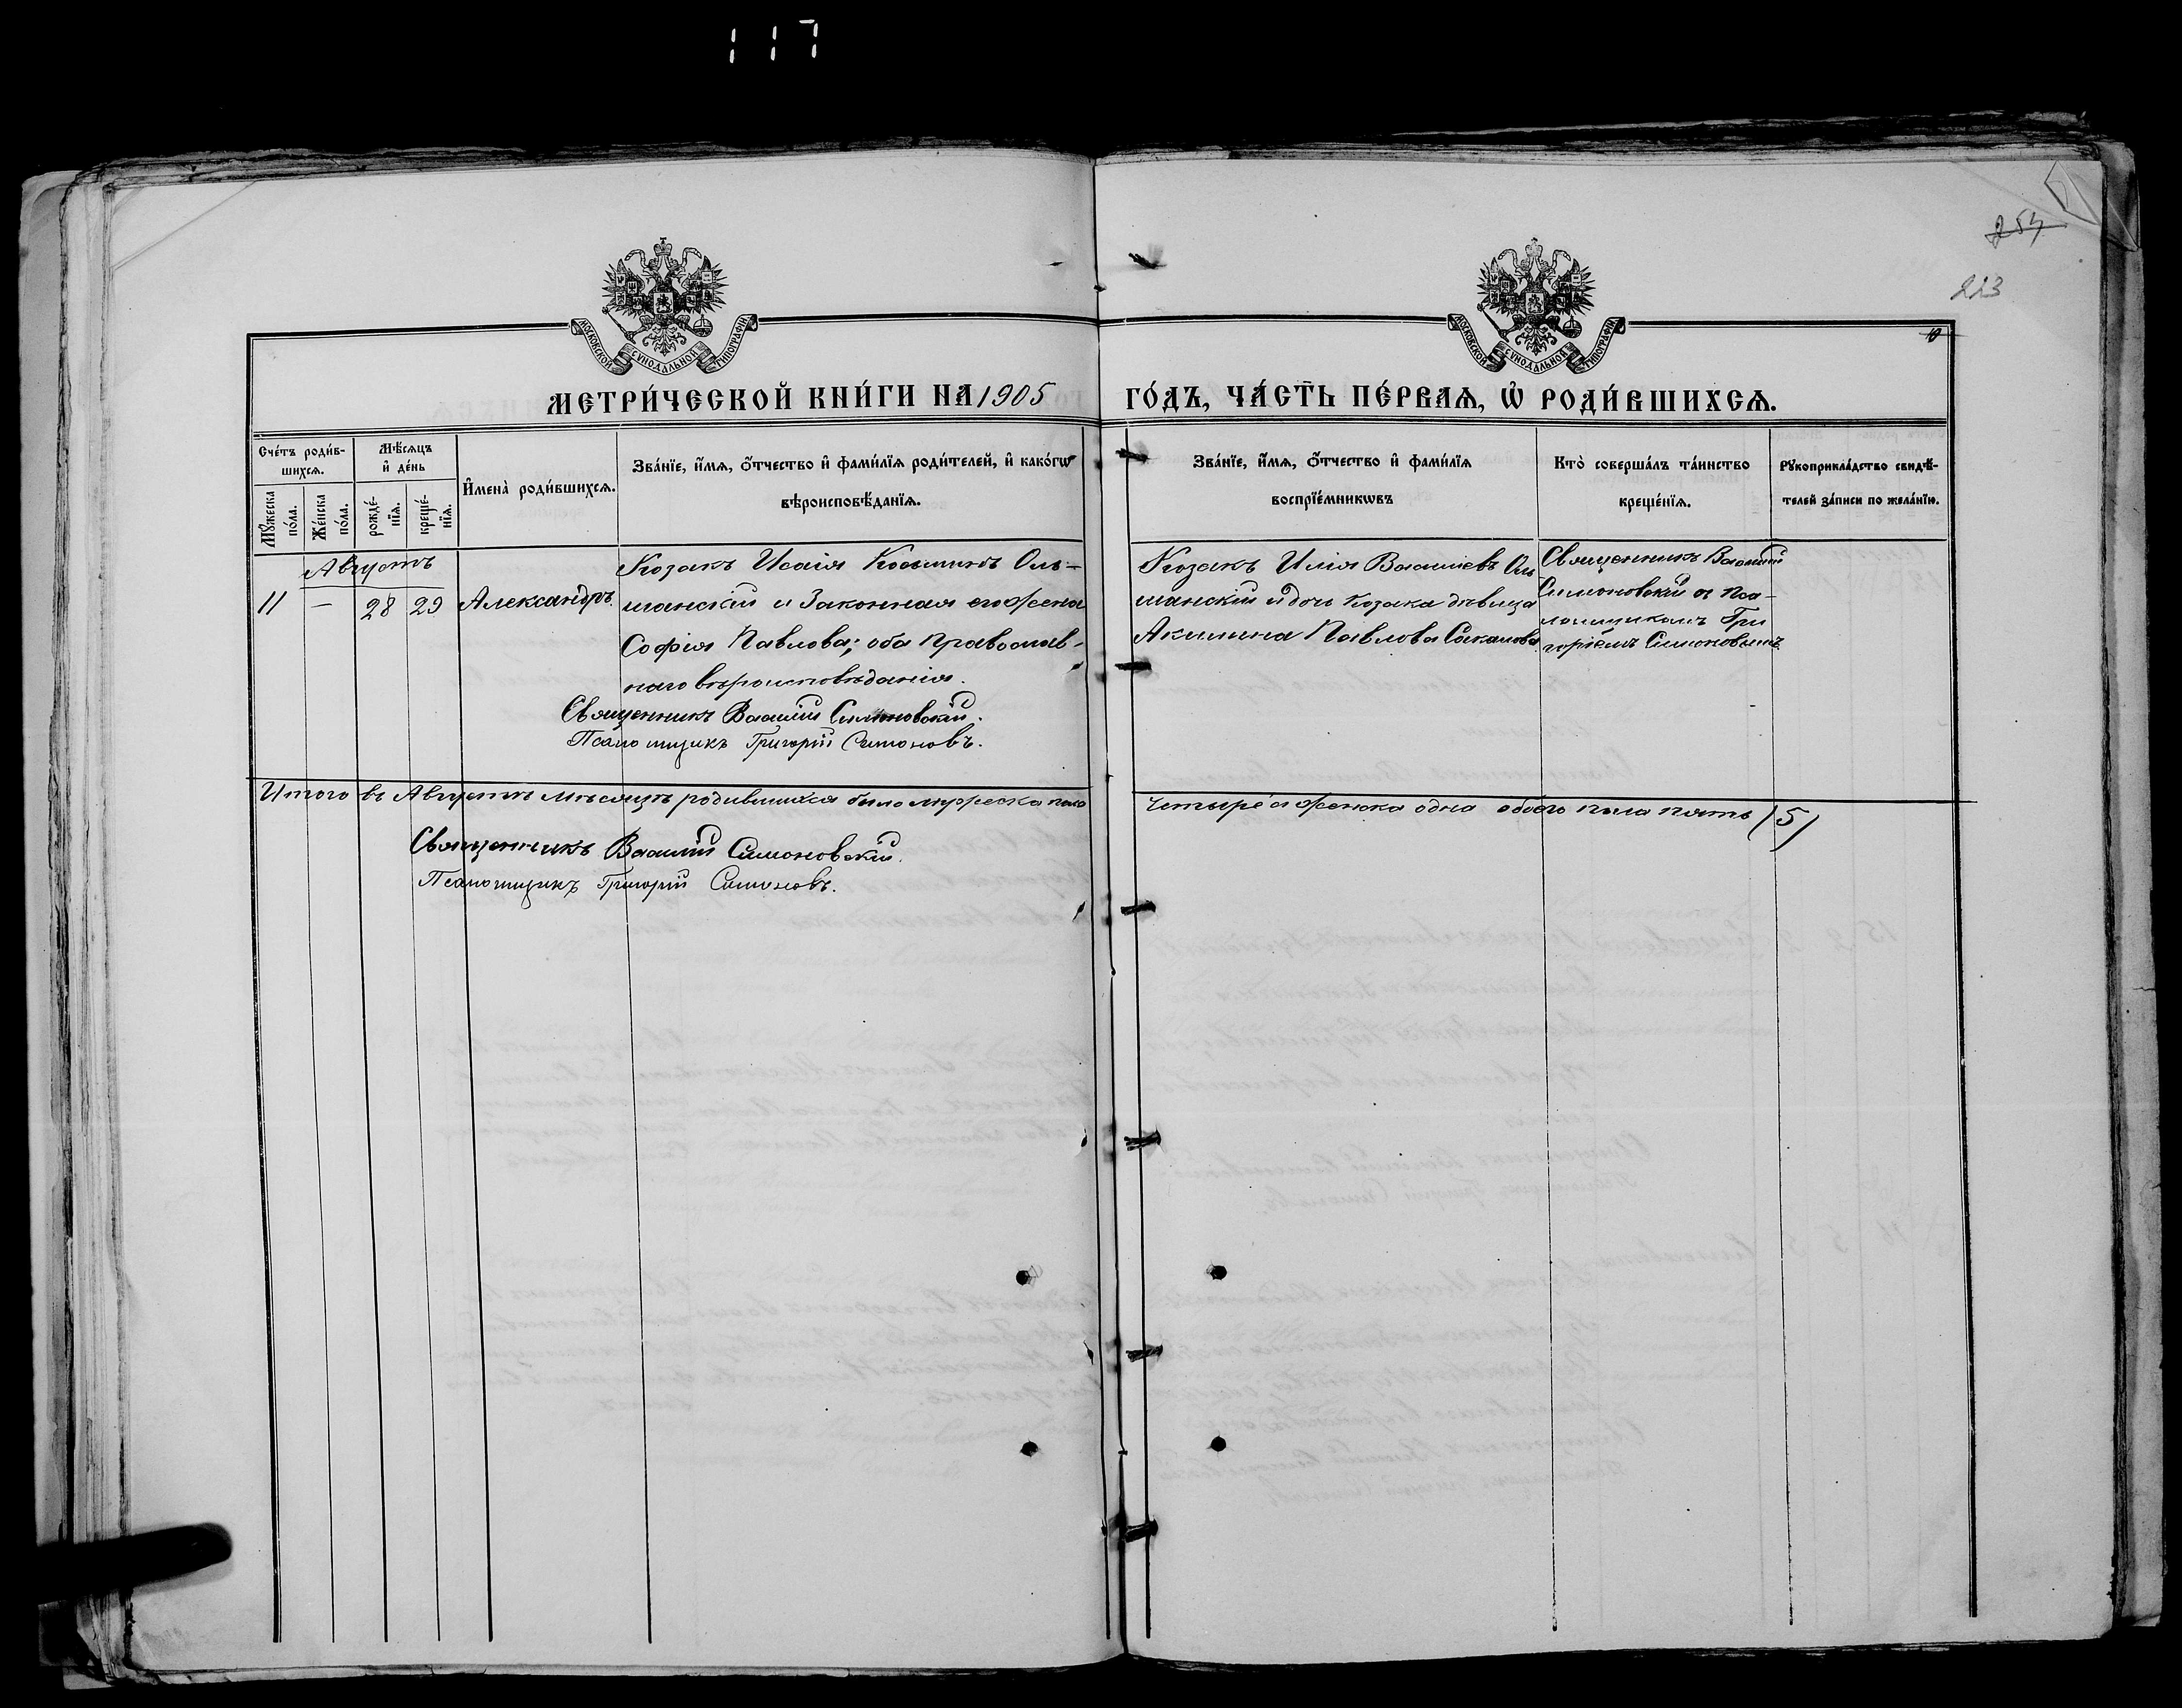 117
254
223
10
МОСКОВСКОЙ СѴНОДАЛЬНОЙ ТИПОГРАФІИ
МОСКОВСКОЙ СѴНОДАЛЬНОЙ ТИПОГРАФІИ
МЕТРИ́ЧЕСКОЙ КНИ́ГИ НА 1905 ГО́ДЪ, ЧА́СТЬ ПЕ́РВАѦ, Ѡ҆ РОДИ́ВШИХСѦ.
Сче́тъ роди́в-
шихсѧ.
Мꙋ́жеска по́ла.
Же́нска по́ла.
Мѣ́сѧцъ и҆ де́нь
рожде́-
нїѧ.
креще́-
нїѧ.
И҆мена̀ роди́вшихсѧ.
Зва́нїе, и҆́мѧ, ѻ҆́тчество и҆ фами́лїѧ роди́телей, и҆ како́гѡ
вѣроисповѣ́данїѧ.
Зва́нїе, и҆́мѧ, ѻ҆́тчество и҆ фами́лїѧ
воспрїе́мникѡвъ
Кто̀ соверша́лъ та́инство
креще́нїѧ.
Рꙋкоприкла́дство свидѣ́-
телей за́писи по жела́нїю.
Августъ
11 — 28 29 Александръ.
Козакъ Исаія Косьминъ Оль-
шанскій и законная его жена
Софія Павлова; оба православ-
наго вѣроисповѣданія.
Священникъ Василій Симоновскій.
Псаломщикъ Григорій Симоновъ.
Козакъ Илія Василіевъ Оль
шанскій и дочь козака дѣвица
Акилина Павлова Сакалова.
Священникъ Василій
Симоновскій съ пса-
ломщикомъ Гри
горіемъ Симоновымъ.
Итого въ Августѣ мѣсяцѣ родившихся было мужеска пола четыре а женска одна обоего пола пять (5)
Священникъ Василій Симоновскій.
Псаломщикъ Григорій Симоновъ.